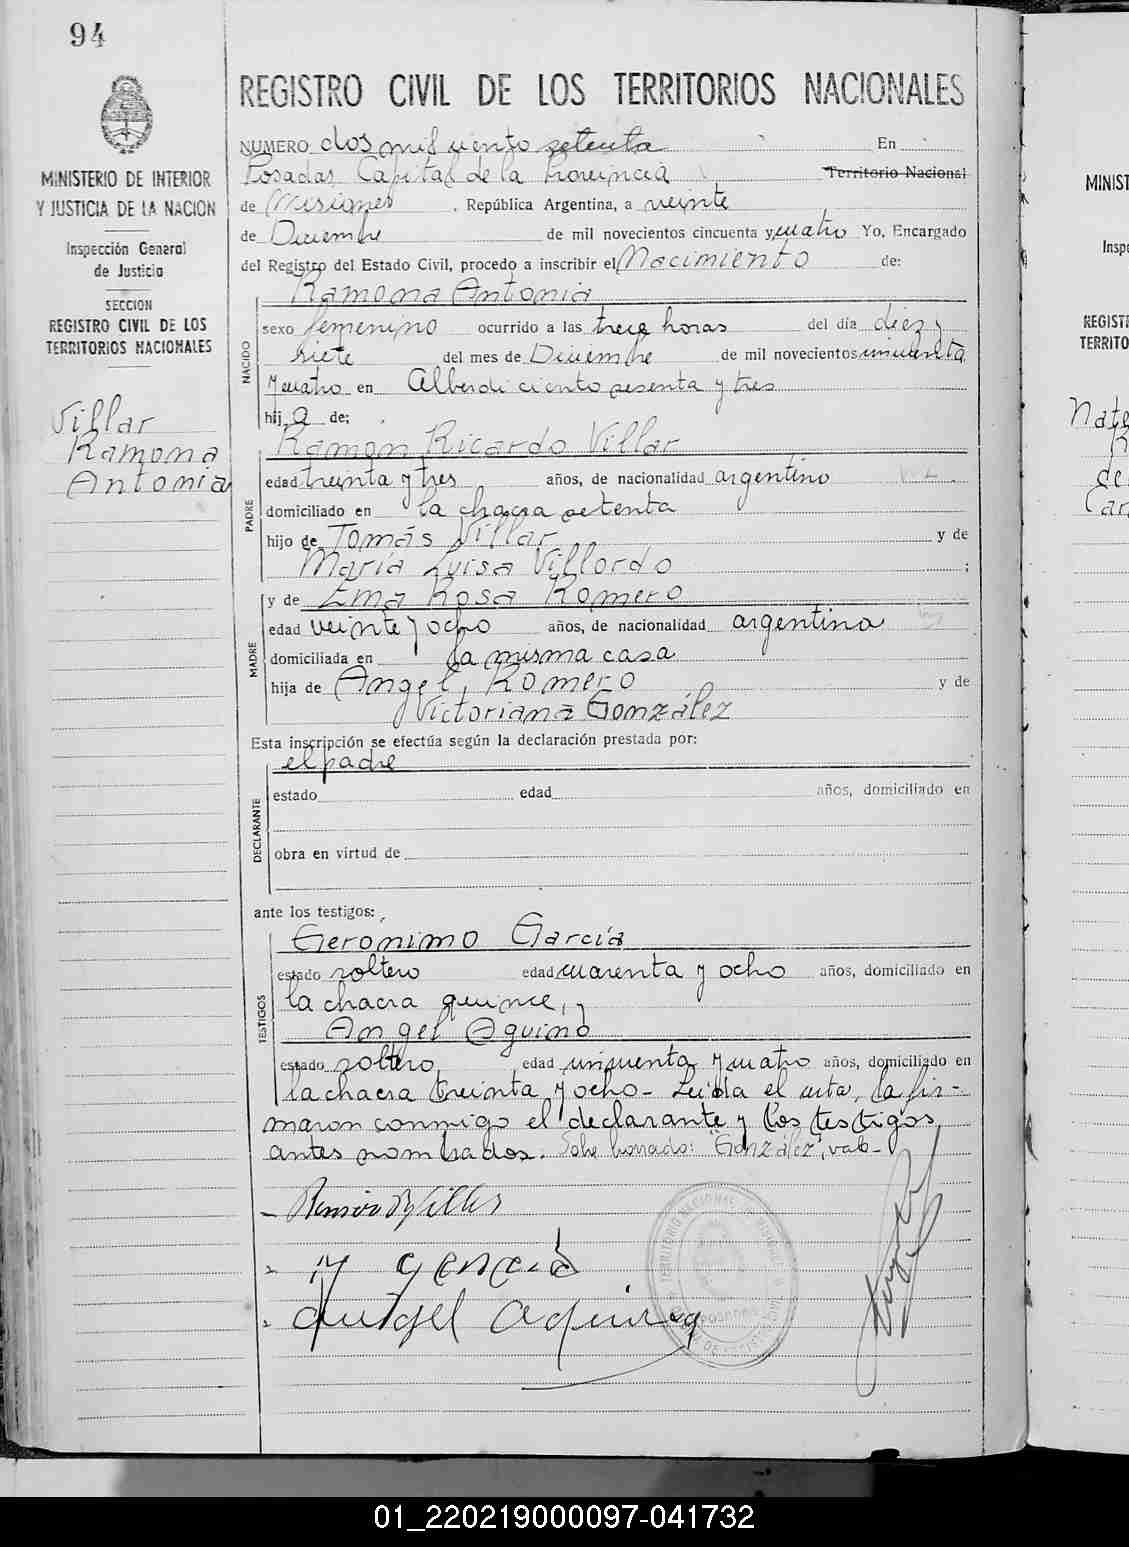 94
MINISTERIO DE INTERIOR
Y JUSTICIA DE LA NACION
Inspección General
de Justicia
SECCION
REGISTRO CIVIL DE LOS
TERRITORIOS NACIONALES
Villar
Ramona
Antonia
REGISTRO CIVIL DE LOS TERRITORIOS NACIONALES
NUMERO dos mil ciento setenta En
Posadas, Capital de la Provincia Territorio Nacional
de Misiones, República Argentina, a veinte
de Diciembre de mil novecientos cincuenta y cuatro Yo, Encargado
del Registro del Estado Civil, procedo a inscribir el Nacimiento de:
Ramona Antonia
NACIDO
sexo femenino ocurrido a las trece horas del día diez y
siete del mes de Diciembre de mil novecientos cincuenta
y cuatro en Alberdi ciento sesenta y tres
hij a de:
Ramon Ricardo Villar
PADRE
edad treinta y tres años, de nacionalidad argentino
domiciliado en la chacra setenta
hijo de Tomás Villar y de
María Luisa Villordo ;
y de Ema Rosa Romero
MADRE
edad veinte y ocho años, de nacionalidad argentina
domiciliada en la misma casa
hija de Angel Romero y de
Victoriana González
Esta inscripción se efectúa según la declaración prestada por:
el padre
DECLARANTE
estado edad años, domiciliado en
obra en virtud de
ante los testigos:
Geronimo García
TESTIGOS
estado soltero edad cuarenta y ocho años, domiciliado en
la chacra quince, y
Angel Aquino
estado soltero edad cincuenta y cuatro años, domiciliado en
la chacra treinta y ocho - Leida el acta, la fir-
maron conmigo el declarante y los testigos
antes nombrados. Sobre borrado: "González", vale-
Angel Aquino
MINIST
Inspe
REGISTR
TERRITO
01_220219000097-041732